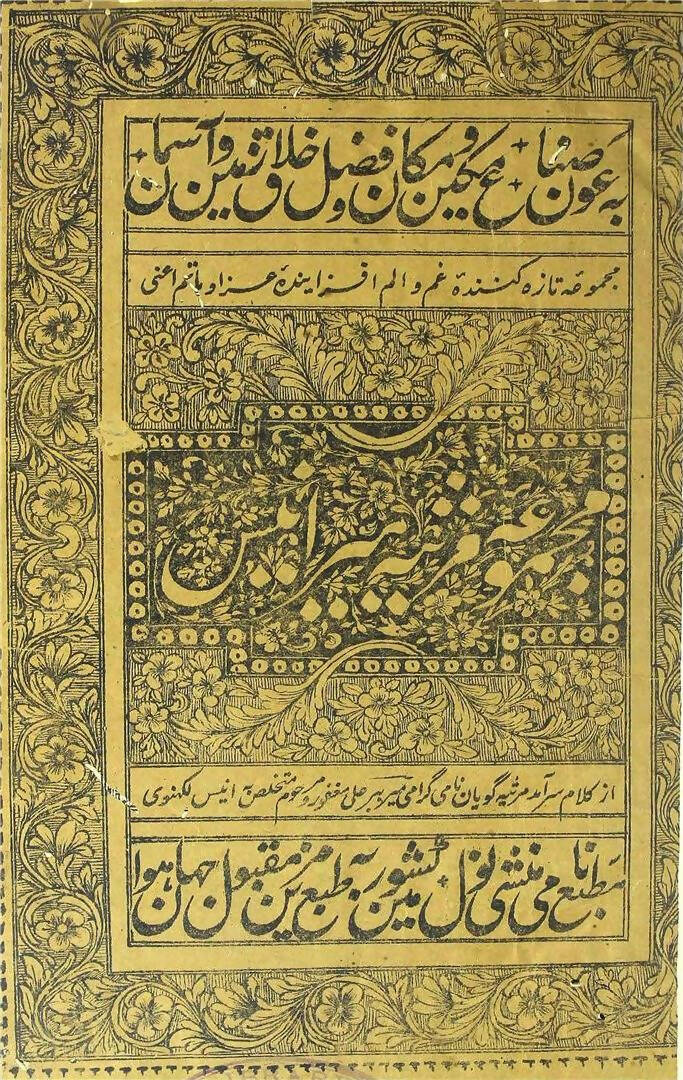 بہ عون صناع مکین و مکان و فضل خلاق زمین و آسمان
مجموعۂ تازہ کنندۂ غم و الم افزایندۂ عزا و ماتم اعنی
مجموعہ مرثیہ میر انیس
از کلام سرآمد مرثیہ گویان نامی گرامی میر ببر علی مغفور و مرحوم متخلص بہ انیس لکھنوی
مطبع نامی منشی نول کشور میں بہ طبع مزین مقبول جہان ہوا